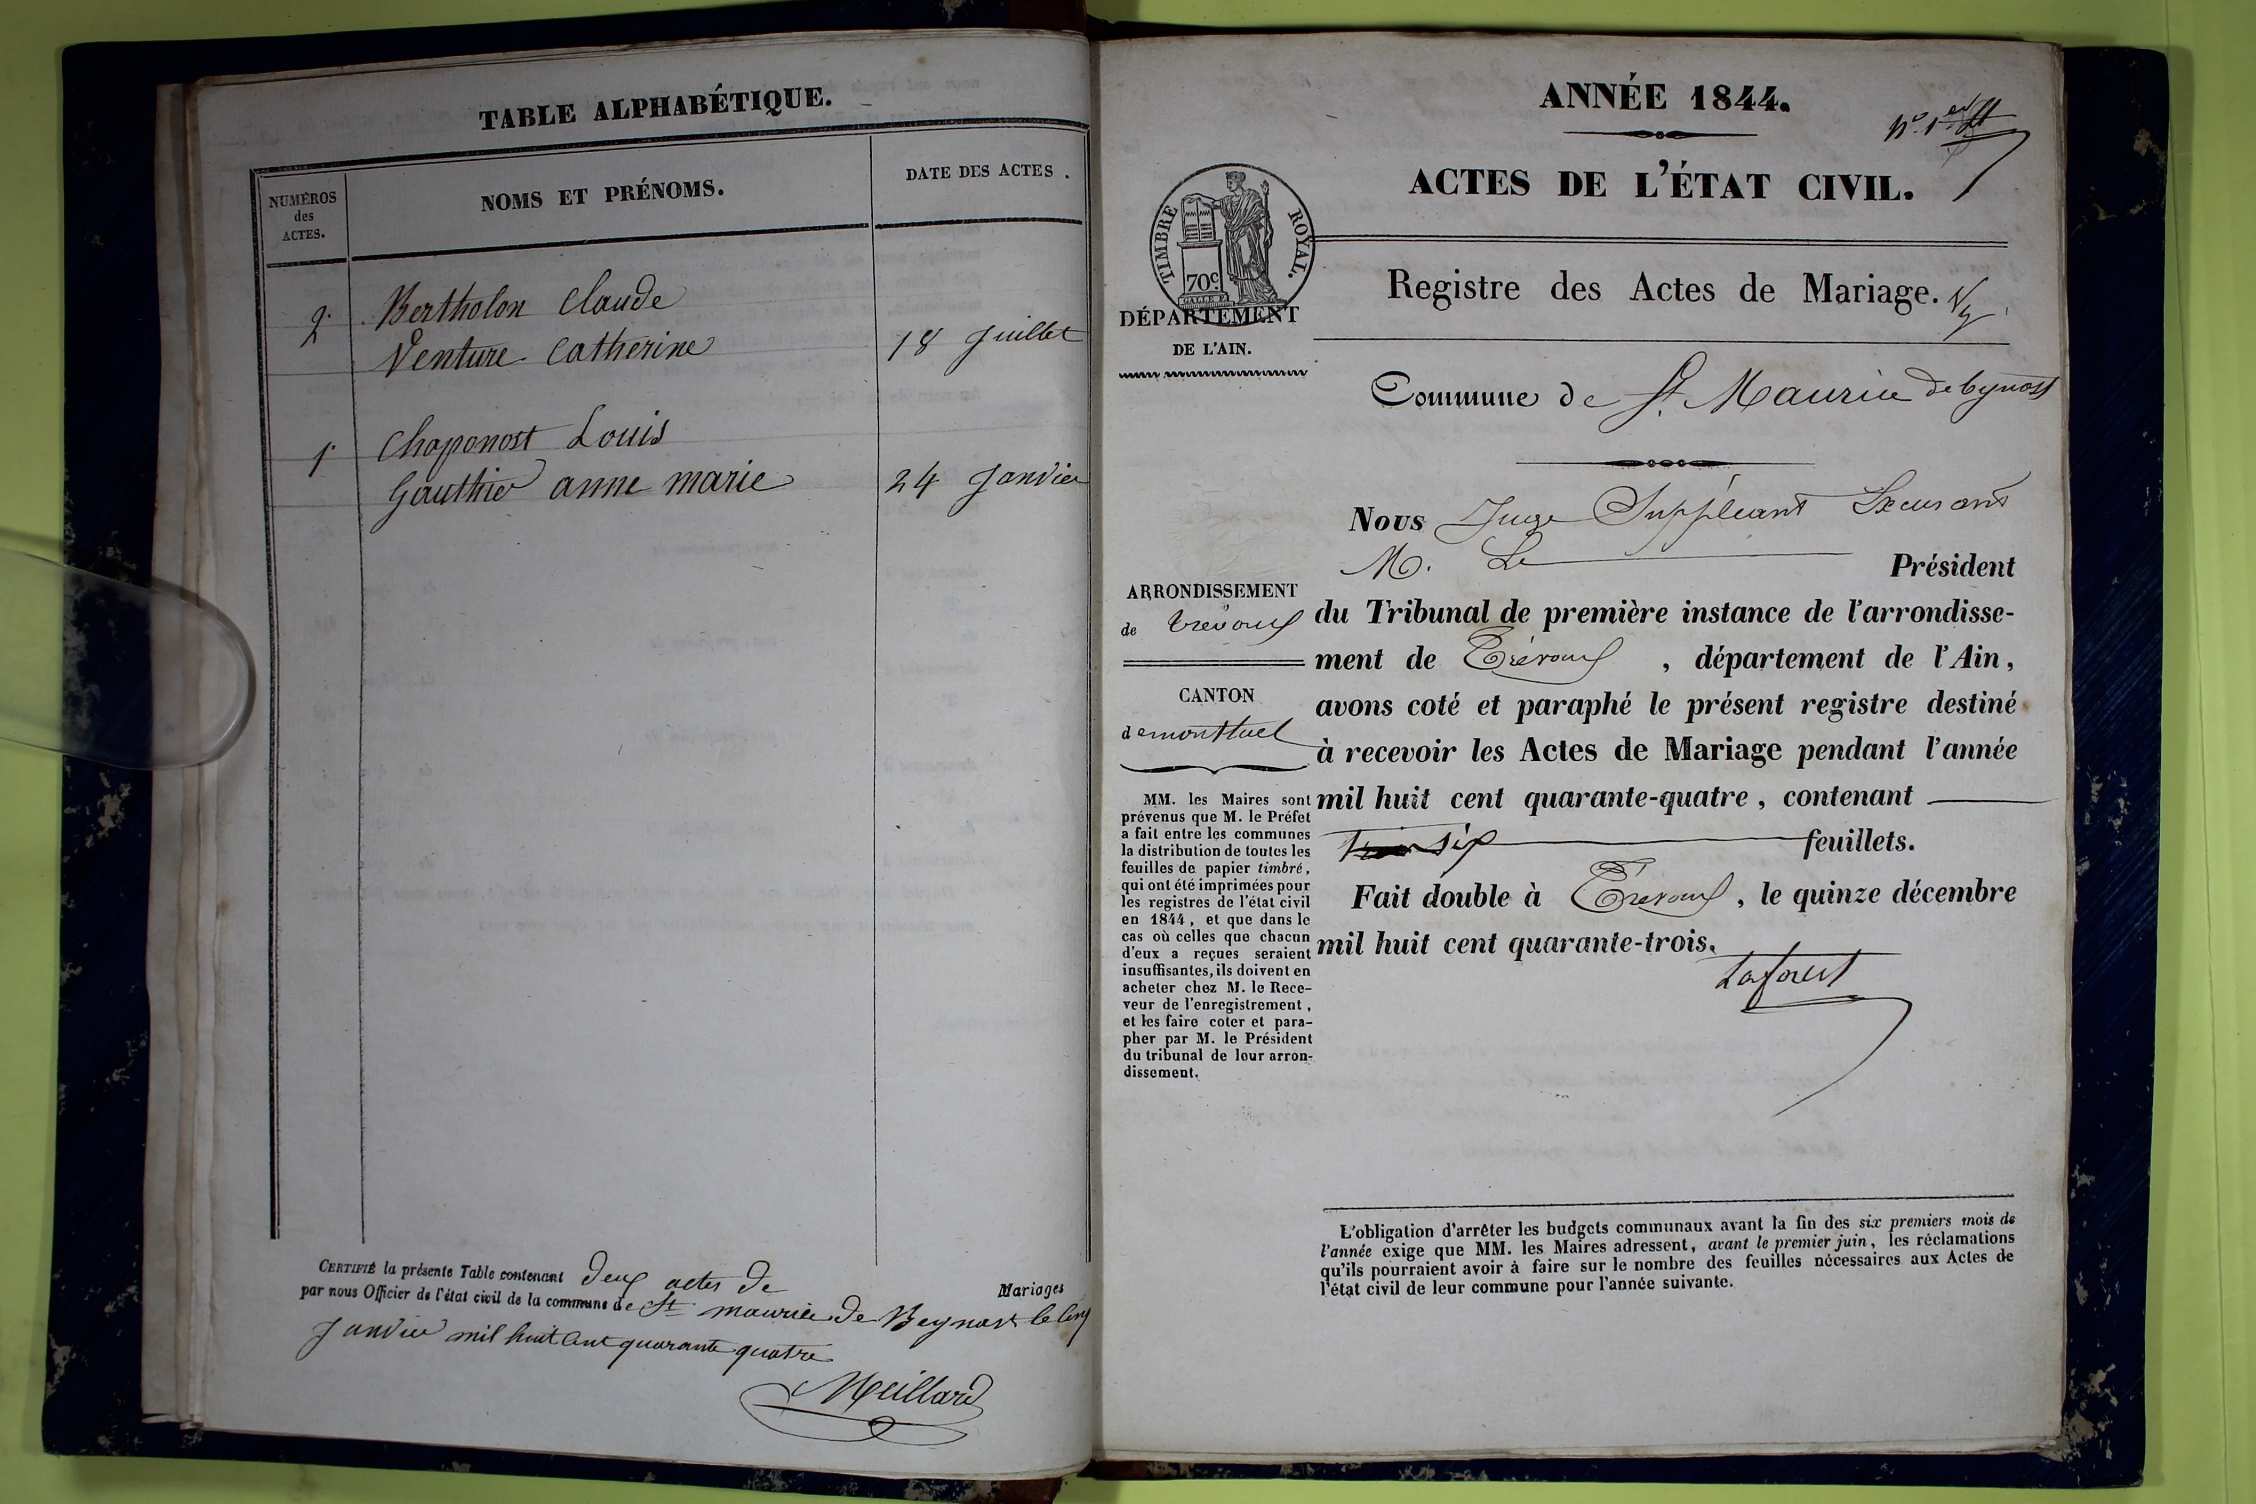 TABLE ALPHABÉTIQUE.
NUMÉROS
des
ACTES.
NOMS ET PRÉNOMS.
DATE DES ACTES.
Bertholon Claude
2. Venture Catherine 18 Juillet
1. Chaponost Louis
Gauthier anne marie 24 Janvier
CERTIFIÉ la présente Table contenant deux actes de Mariages
par nous Officier de l'état civil de la commune de St maurice de Beynost le cinq
Janvier mil huit cent quarante quatre
Meillard
ANNÉE 1844.
N° 1er
ACTES DE L'ÉTAT CIVIL.
TIMBRE ROYAL.
70c
Registre des Actes de Mariage.
DÉPARTEMENT
DE L'AIN.
Commune de St. Maurice de bynost
Nous Juge Suppléant
M. Le Président
ARRONDISSEMENT
de trevoux
du Tribunal de première instance de l'arrondisse-
ment de Trévoux, département de l'Ain,
CANTON
de montluel
avons coté et paraphé le présent registre destiné
à recevoir les Actes de Mariage pendant l'année
mil huit cent quarante-quatre, contenant
six feuillets.
Fait double à Trévoux, le quinze décembre
mil huit cent quarante-trois.
Laforest
MM. les Maires sont
prévenus que M. le Préfet
a fait entre les communes
la distribution de toutes les
feuilles de papier timbré,
qui ont été imprimées pour
les registres de l'état civil
en 1844, et que dans le
cas où celles que chacun
d'eux a reçues seraient
insuffisantes, ils doivent en
acheter chez M. le Rece-
veur de l'enregistrement,
et les faire coter et para-
pher par M. le Président
du tribunal de leur arron-
dissement.
L'obligation d'arrêter les budgets communaux avant la fin des six premiers mois de
l'année exige que MM. les Maires adressent, avant le premier juin, les réclamations
qu'ils pourraient avoir à faire sur le nombre des feuilles nécessaires aux Actes de
l'état civil de leur commune pour l'année suivante.